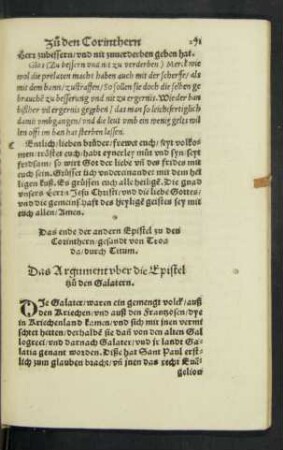 Zů den Corinthern
herr zubessern/vnd nit zuuerderben geben hat.
Glos (Zu bessern vnd nit zu verderben) Merck wie
wol die prelaten macht haben auch mit der scherffe/als
mit dem bann/zustraffen/So sollen sie doch die selben ge
brauchē zu besserung vnd nit zu ergernis. Wie der ban
bißher vil ergernis gegeben/das man so leichfertiglich
damit vmbgangen/vnd die leut vmb ein wenig gelts wil
len offt im ban hat sterben lassen.
Entlich/lieben brůder/frewet euch/seyt volkō
men/tröstet euch/habt eynerley můt vnd syn/seyt
fridsam/so wirt Got der liebe vñ des frides mit euch
sein. Grüsset sich vndereinander mit dem hei
ligen kuß. Es grüssen euch alle heilige. Die gnad
vnsers Herrn Jesu Christi/vnd die liebe Gottes/
vnd die gemeinschafft des heylige geistes sey mit
euch allen/Amen.
Das ende der andern Epistel zu den
Corinthern/gesandt von Troa
da/durch Titum.
Das Argument vber die Epistel
zů den Galatern.
DJe Galater/waren ein gemengt volck/auß
den Kriechen/vnd auß den Frantzosen/dye
in Kriechenland kamen/vnd sich mit jnen vermi
schtet hetten/derhalbē sie dañ von den alten Gal
logreci/vnd darnach Galater/vnd jr landt Ga-
latia genant worden. Dise hat Sant Paul erst-
lich zum glauben bracht/vñ jnen das recht Euā-
gelion